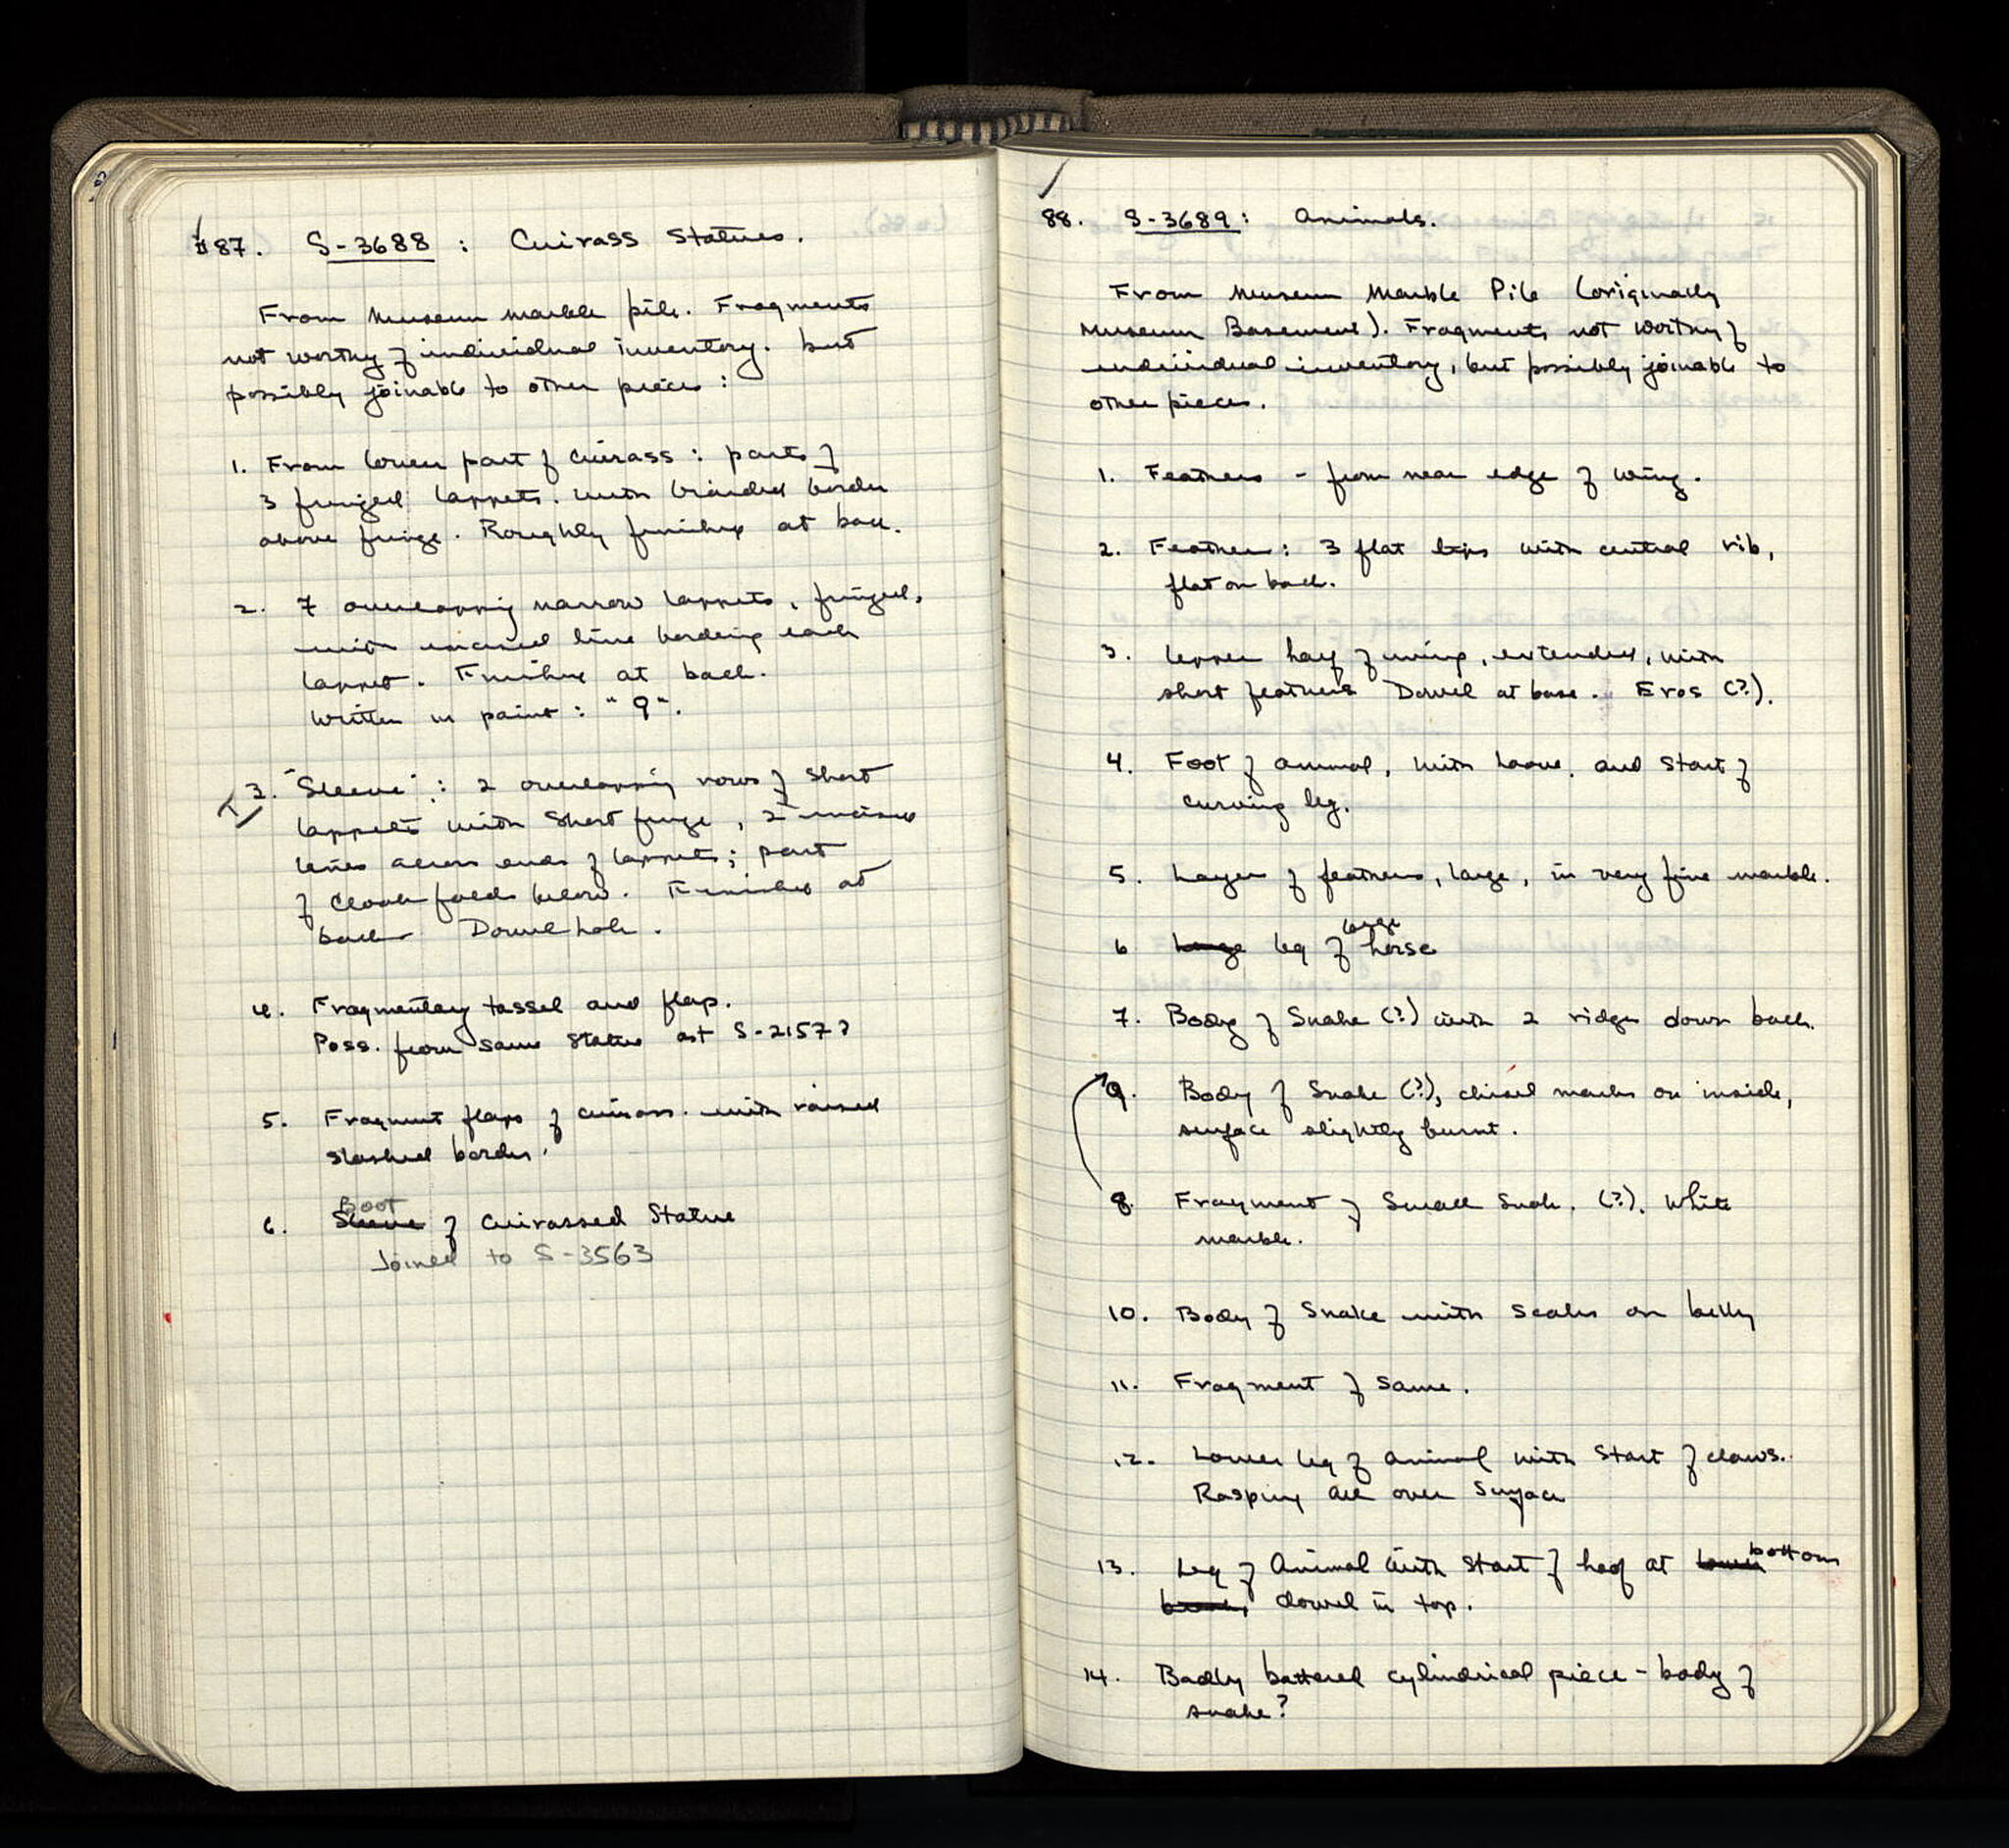 #87. S-3688 : Cuirass Statues.
From Museum marble pile. Fragments
not worthy of individual inventory. but
possibly joinable to other pieces :
1. From lower part of cuirass : parts of
3 fringed lappets. with braided border
above fringe. Roughly finished at back.
2. 7 overlapping narrow lappets, fringed,
with incised line bordering each
lappet. Finished at back.
Written in paint : "9".
3. "Sleeve" : 2 overlapping rows of short
lappets with short fringe, 2 incised
lines across ends of lappets; part
of cloak folds below. Finished at
back Dowel hole.
4. Fragmentary tassel and flap.
Poss. from same statue as S-2157?
5. Fragment flaps of cuirass. with raised
slashed border.
Boot
6. Sleeve of Cuirassed Statue
Joined to S-3563
88. S-3689 : Animals.
From Museum Marble Pile (originally
Museum Basement). Fragments not worthy of
individual inventory, but possibly joinable to
other pieces.
1. Feathers - from near edge of wing.
2. Feathers: 3 flat tips with central rib,
flat on back.
3. Upper half of wing, extended, with
short feathers Dowel at base. Eros (?).
4. Foot of animal, with hoove, and start of
curving leg.
5. Layer of feathers, large, in very fine marble.
large
6 Large leg of horse
7. Body of Snake (?) with 2 ridges down back.
9. Body of Snake (?), chisel marks on inside,
surface slightly burnt.
8. Fragment of Small Snake. (?). White
marble.
10. Body of Snake with scales on belly
11. Fragment of same.
12. Lower leg of animal with start of claws.
Rasping all over surface
13. Leg of Animal with start of hoof at lower bottom
dowel in top.
14. Badly battered cylindrical piece - body of
snake?